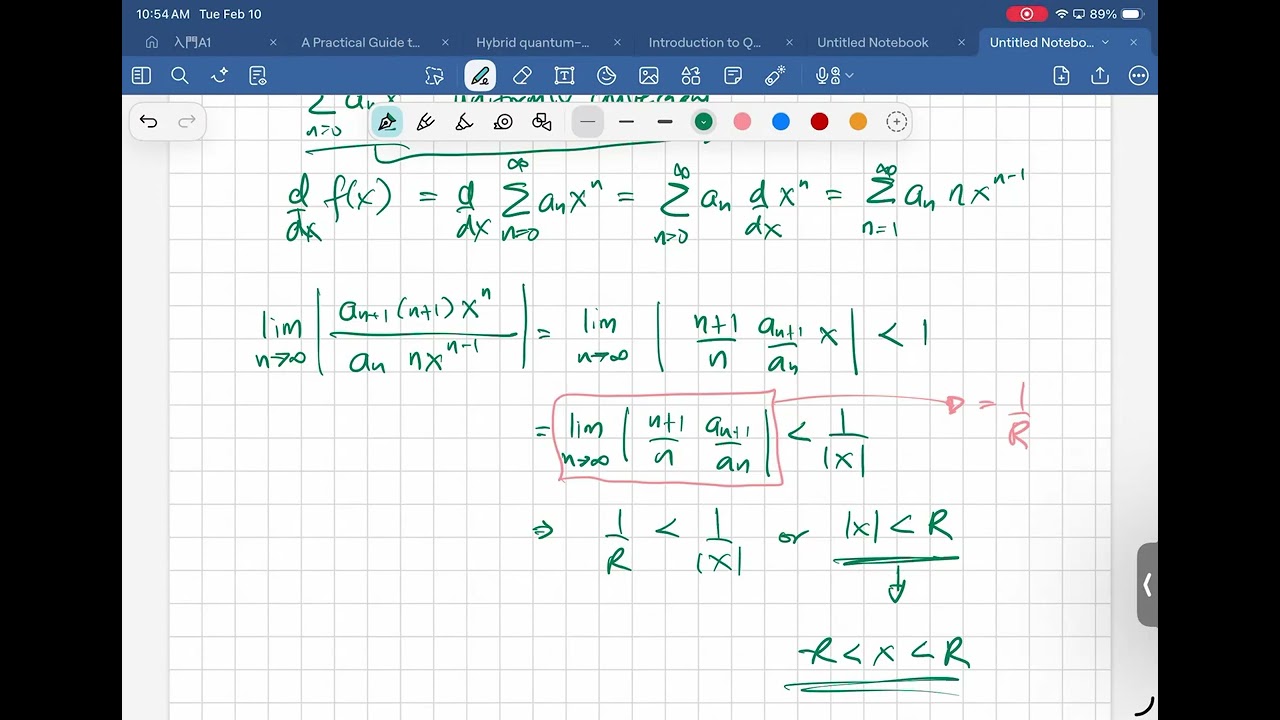 10:54 AM Tue Feb 10 89%
入門A1 A Practical Guide t... Hybrid quantum-... Introduction to Q... Untitled Notebook Untitled Notebo...
∑ aₙx uniformly convergent
n=0
d/dx f(x) = d/dx ∑_{n=0}^{∞} aₙxⁿ = ∑_{n=0}^{∞} aₙ d/dx xⁿ = ∑_{n=1}^{∞} aₙ n xⁿ⁻¹
lim_{n→∞} | aₙ₊₁ (n+1) xⁿ / aₙ n xⁿ⁻¹ | = lim_{n→∞} | n+1/n aₙ₊₁/aₙ x | < 1
= lim_{n→∞} | n+1/n aₙ₊₁/aₙ | < 1/|x| = 1/R
⇒ 1/R < 1/|x| or |x| < R
-R < x < R